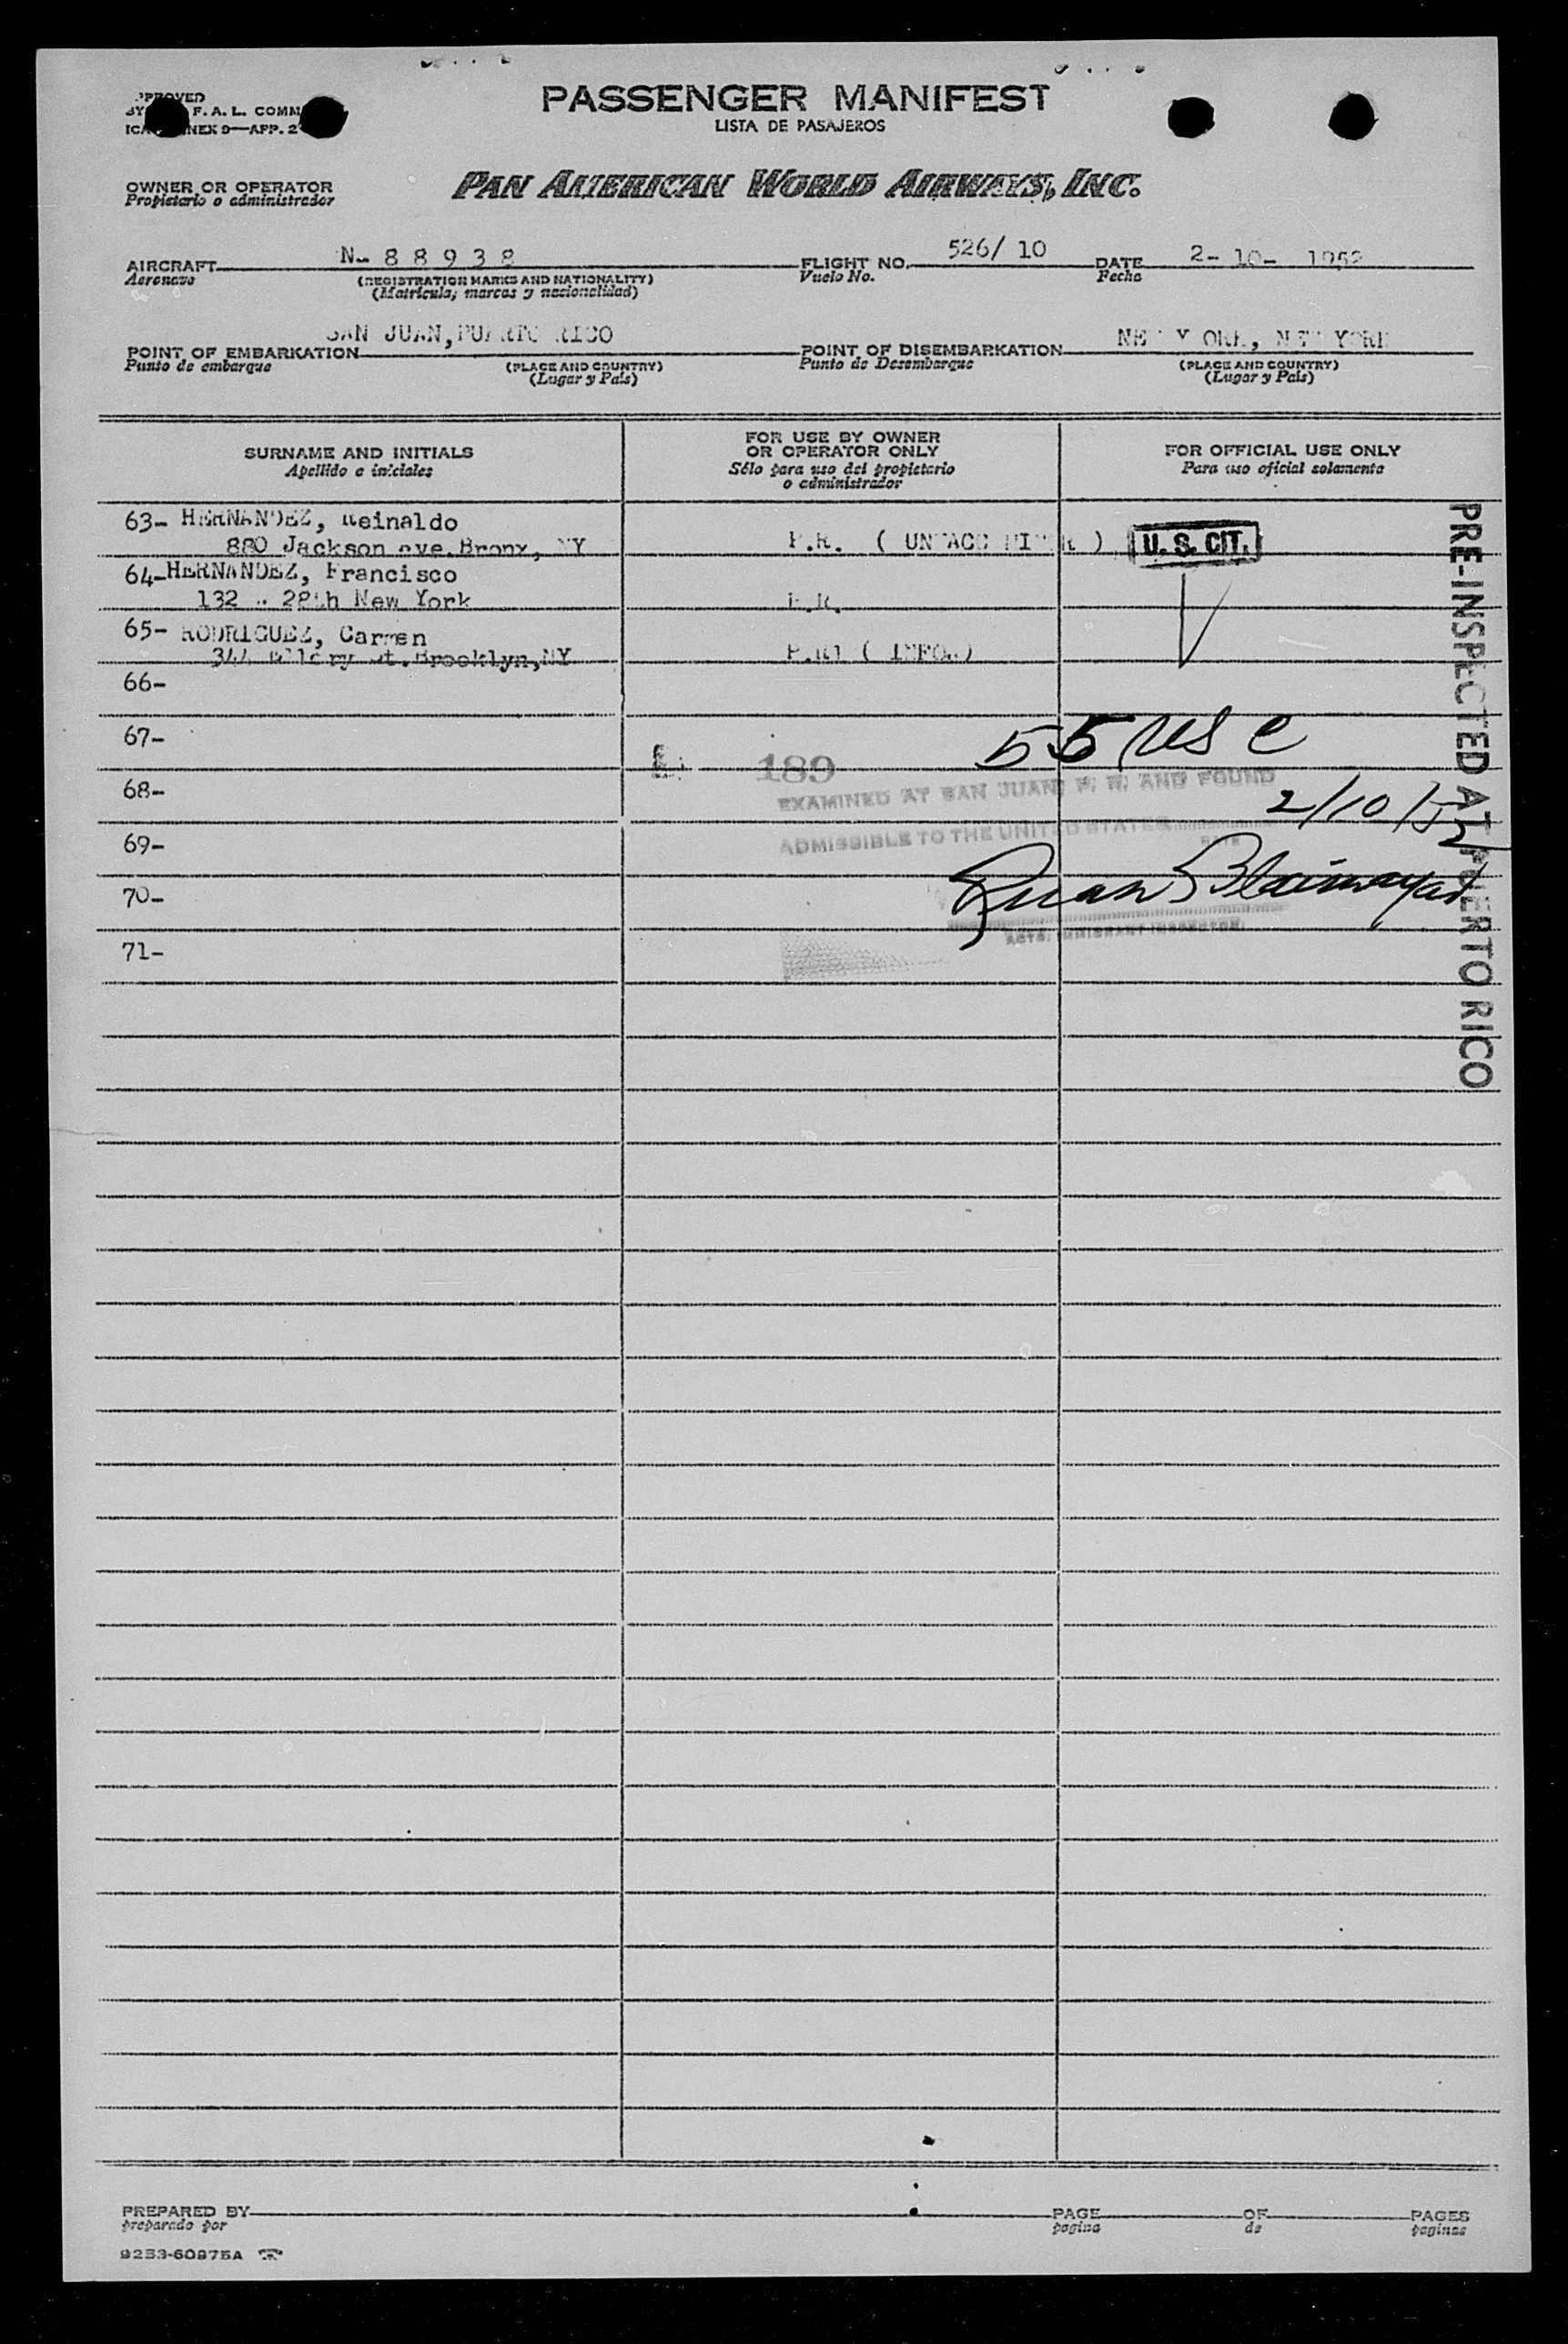 PASSENGER MANIFEST
LISTA DE PASAJEROS
F. A. L. COMM
9—APP. 2
OWNER OR OPERATOR
Propietario o administrador
PAN AMERICAN WORLD AIRWAYS, INC.
AIRCRAFT N- 8 8 9 3 8 FLIGHT NO. 526/ 10 DATE 2- 10- 1952
Aeronave (REGISTRATION MARKS AND NATIONALITY) Vuelo No. Fecha
(Matrícula, marcas y nacionalidad)
POINT OF EMBARKATION SAN JUAN, RICO POINT OF DISEMBARKATION NEW YORK, NEW YORK
Punto de embarque (PLACE AND COUNTRY) Punto de Desembarque (PLACE AND COUNTRY)
(Lugar y País) (Lugar y País)
SURNAME AND INITIALS
Apellido e iniciales
FOR USE BY OWNER
OR OPERATOR ONLY
Sólo para uso del propietario
o administrador
FOR OFFICIAL USE ONLY
Para uso oficial solamente
63- HERNANDEZ, Reinaldo
880 Jackson ave. Bronx, NY P.R. ( UNACC MINOR ) U. S. CIT.
64- HERNANDEZ, Francisco
132 28th New York P.R.
65- RODRIGUEZ, Carmen
St. Brooklyn, NY
66-
67- 55 USC
189
68- EXAMINED AT SAN JUAN, P. R. AND FOUND
2/10/52
69- ADMISSIBLE TO THE UNITED STATES
DATE
70- Juan
IMMIGRANT INSPECTOR
71-
PRE-INSPECTED AT PUERTO RICO
PREPARED BY PAGE OF PAGES
preparado por pagina de paginas
9253-60975A